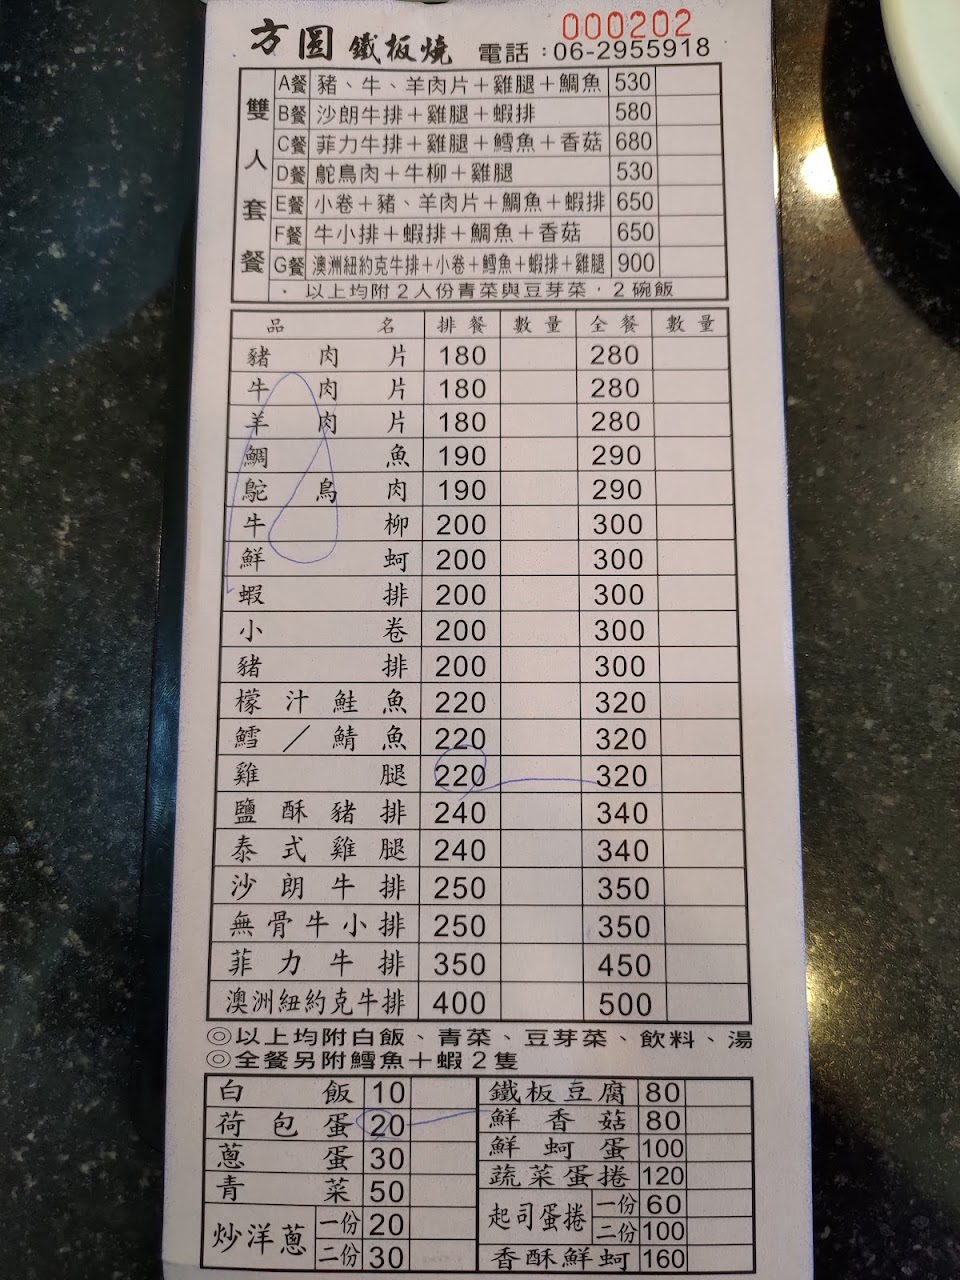 000202
方圓 鐵板燒 電話：06-2955918
雙人套餐
A餐 豬、牛、羊肉片＋雞腿＋鯛魚 530
B餐 沙朗牛排＋雞腿＋蝦排 580
C餐 菲力牛排＋雞腿＋鱈魚＋香菇 680
D餐 鴕鳥肉＋牛柳＋雞腿 530
E餐 小卷＋豬、羊肉片＋鯛魚＋蝦排 650
F餐 牛小排＋蝦排＋鯛魚＋香菇 650
G餐 澳洲紐約克牛排＋小卷＋鱈魚＋蝦排＋雞腿 900
．以上均附2人份青菜與豆芽菜，2碗飯
品名 排餐 數量 全餐 數量
豬肉片 180 280
牛肉片 180 280
羊肉片 180 280
鯛魚 190 290
鴕鳥肉 190 290
牛柳 200 300
鮮蚵 200 300
蝦排 200 300
小卷 200 300
豬排 200 300
檬汁鮭魚 220 320
鱈／鯖魚 220 320
雞腿 220 320
鹽酥豬排 240 340
泰式雞腿 240 340
沙朗牛排 250 350
無骨牛小排 250 350
菲力牛排 350 450
澳洲紐約克牛排 400 500
◎以上均附白飯、青菜、豆芽菜、飲料、湯
◎全餐另附鱈魚＋蝦2隻
白飯 10
荷包蛋 20
蔥蛋 30
青菜 50
炒洋蔥 一份 20
二份 30
鐵板豆腐 80
鮮香菇 80
鮮蚵蛋 100
蔬菜蛋捲 120
起司蛋捲 一份 60
二份 100
香酥鮮蚵 160